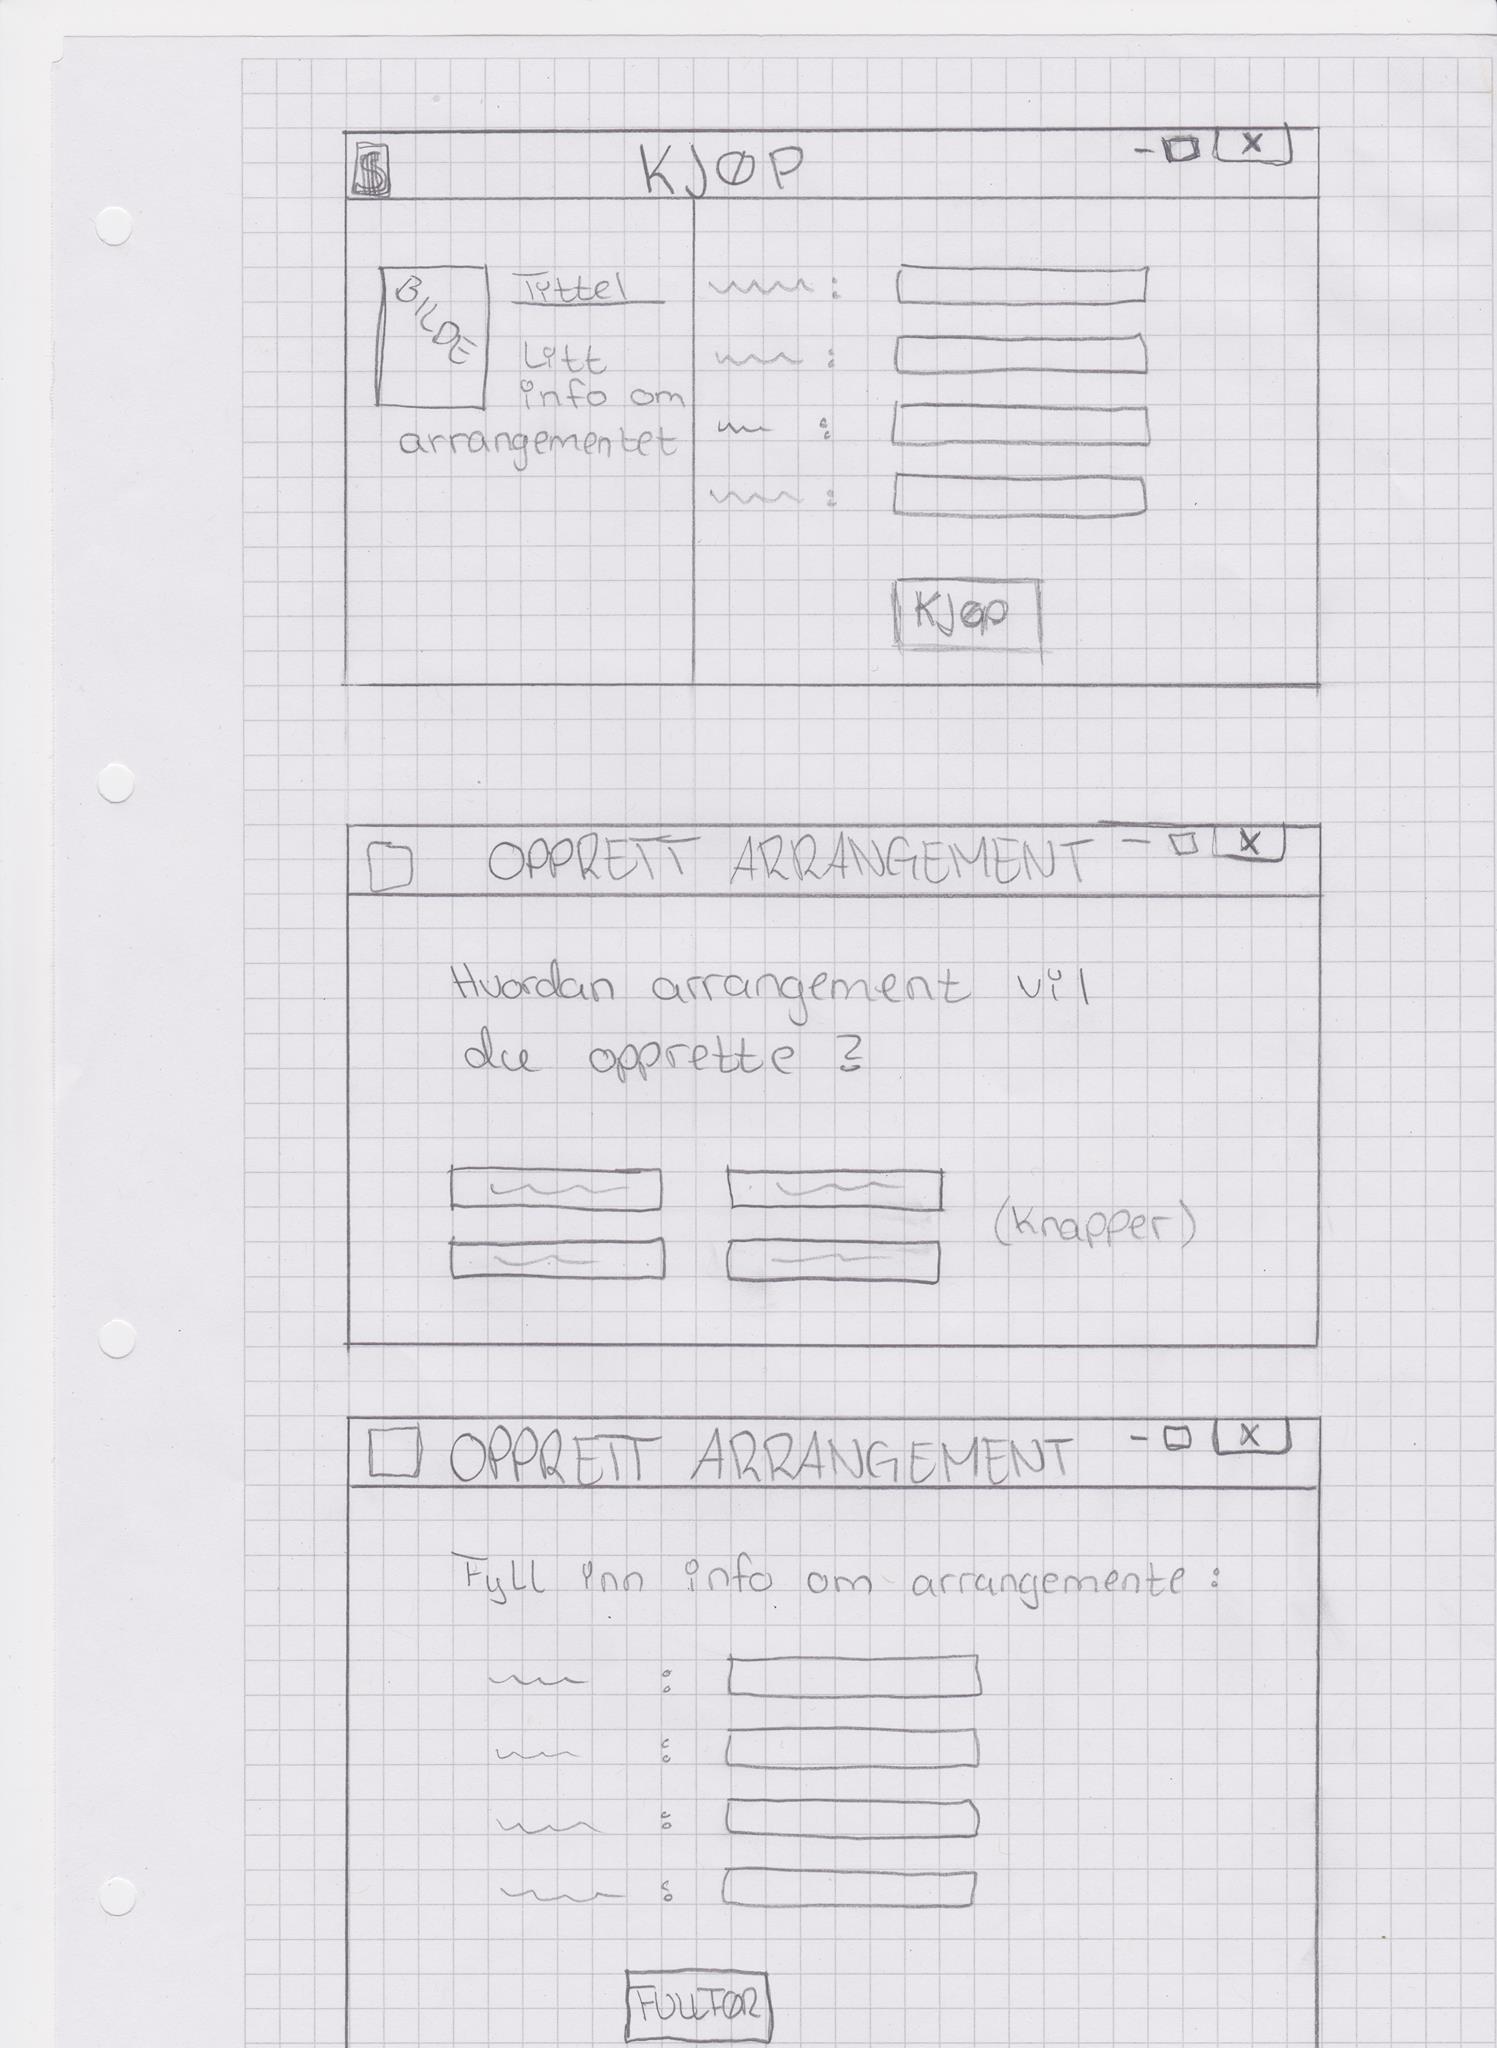 $ KJØP - X
BILDE
Tittel
Litt
info om
arrangementet
:
:
:
:
KJØP
OPPRETT ARRANGEMENT - X
Hvordan arrangement vil
du opprette ?
(Knapper)
OPPRETT ARRANGEMENT - X
Fyll inn info om arrangemente :
:
:
:
:
FULLFØR